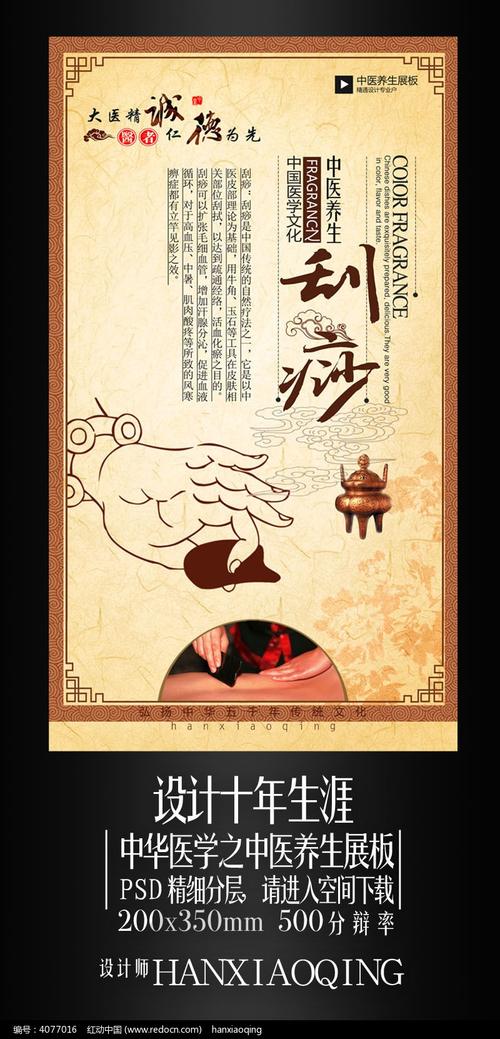 中医养生展板
精通设计专业户
大医精诚
医者仁德为先
COIOR FRAGRANCE
Chinese dishes are exquisitely prepared, delicious.They are very good
in color, flavor and taste.
中医养生
FRAGRANCN
中国医学文化
刮痧
刮痧:刮痧是中国传统的自然疗法之一,它是以中
医皮部理论为基础,用牛角、玉石等工具在皮肤相
关部位刮拭,以达到疏通经络,活血化瘀之目的。
刮痧可以扩张毛细血管,增加汗腺分泌,促进血液
循环,对于高血压、中暑、肌肉酸疼等所致的风寒
痹症都有立竿见影之效。
弘扬中华五千年传统文化
hanxiaoqing
设计十年生涯
中华医学之中医养生展板
PSD精细分层,请进入空间下载
200x350mm 500分辩率
设计师HANXIAOQING
编号:4077016 红动中国 (www.redocn.com) hanxiaoqing